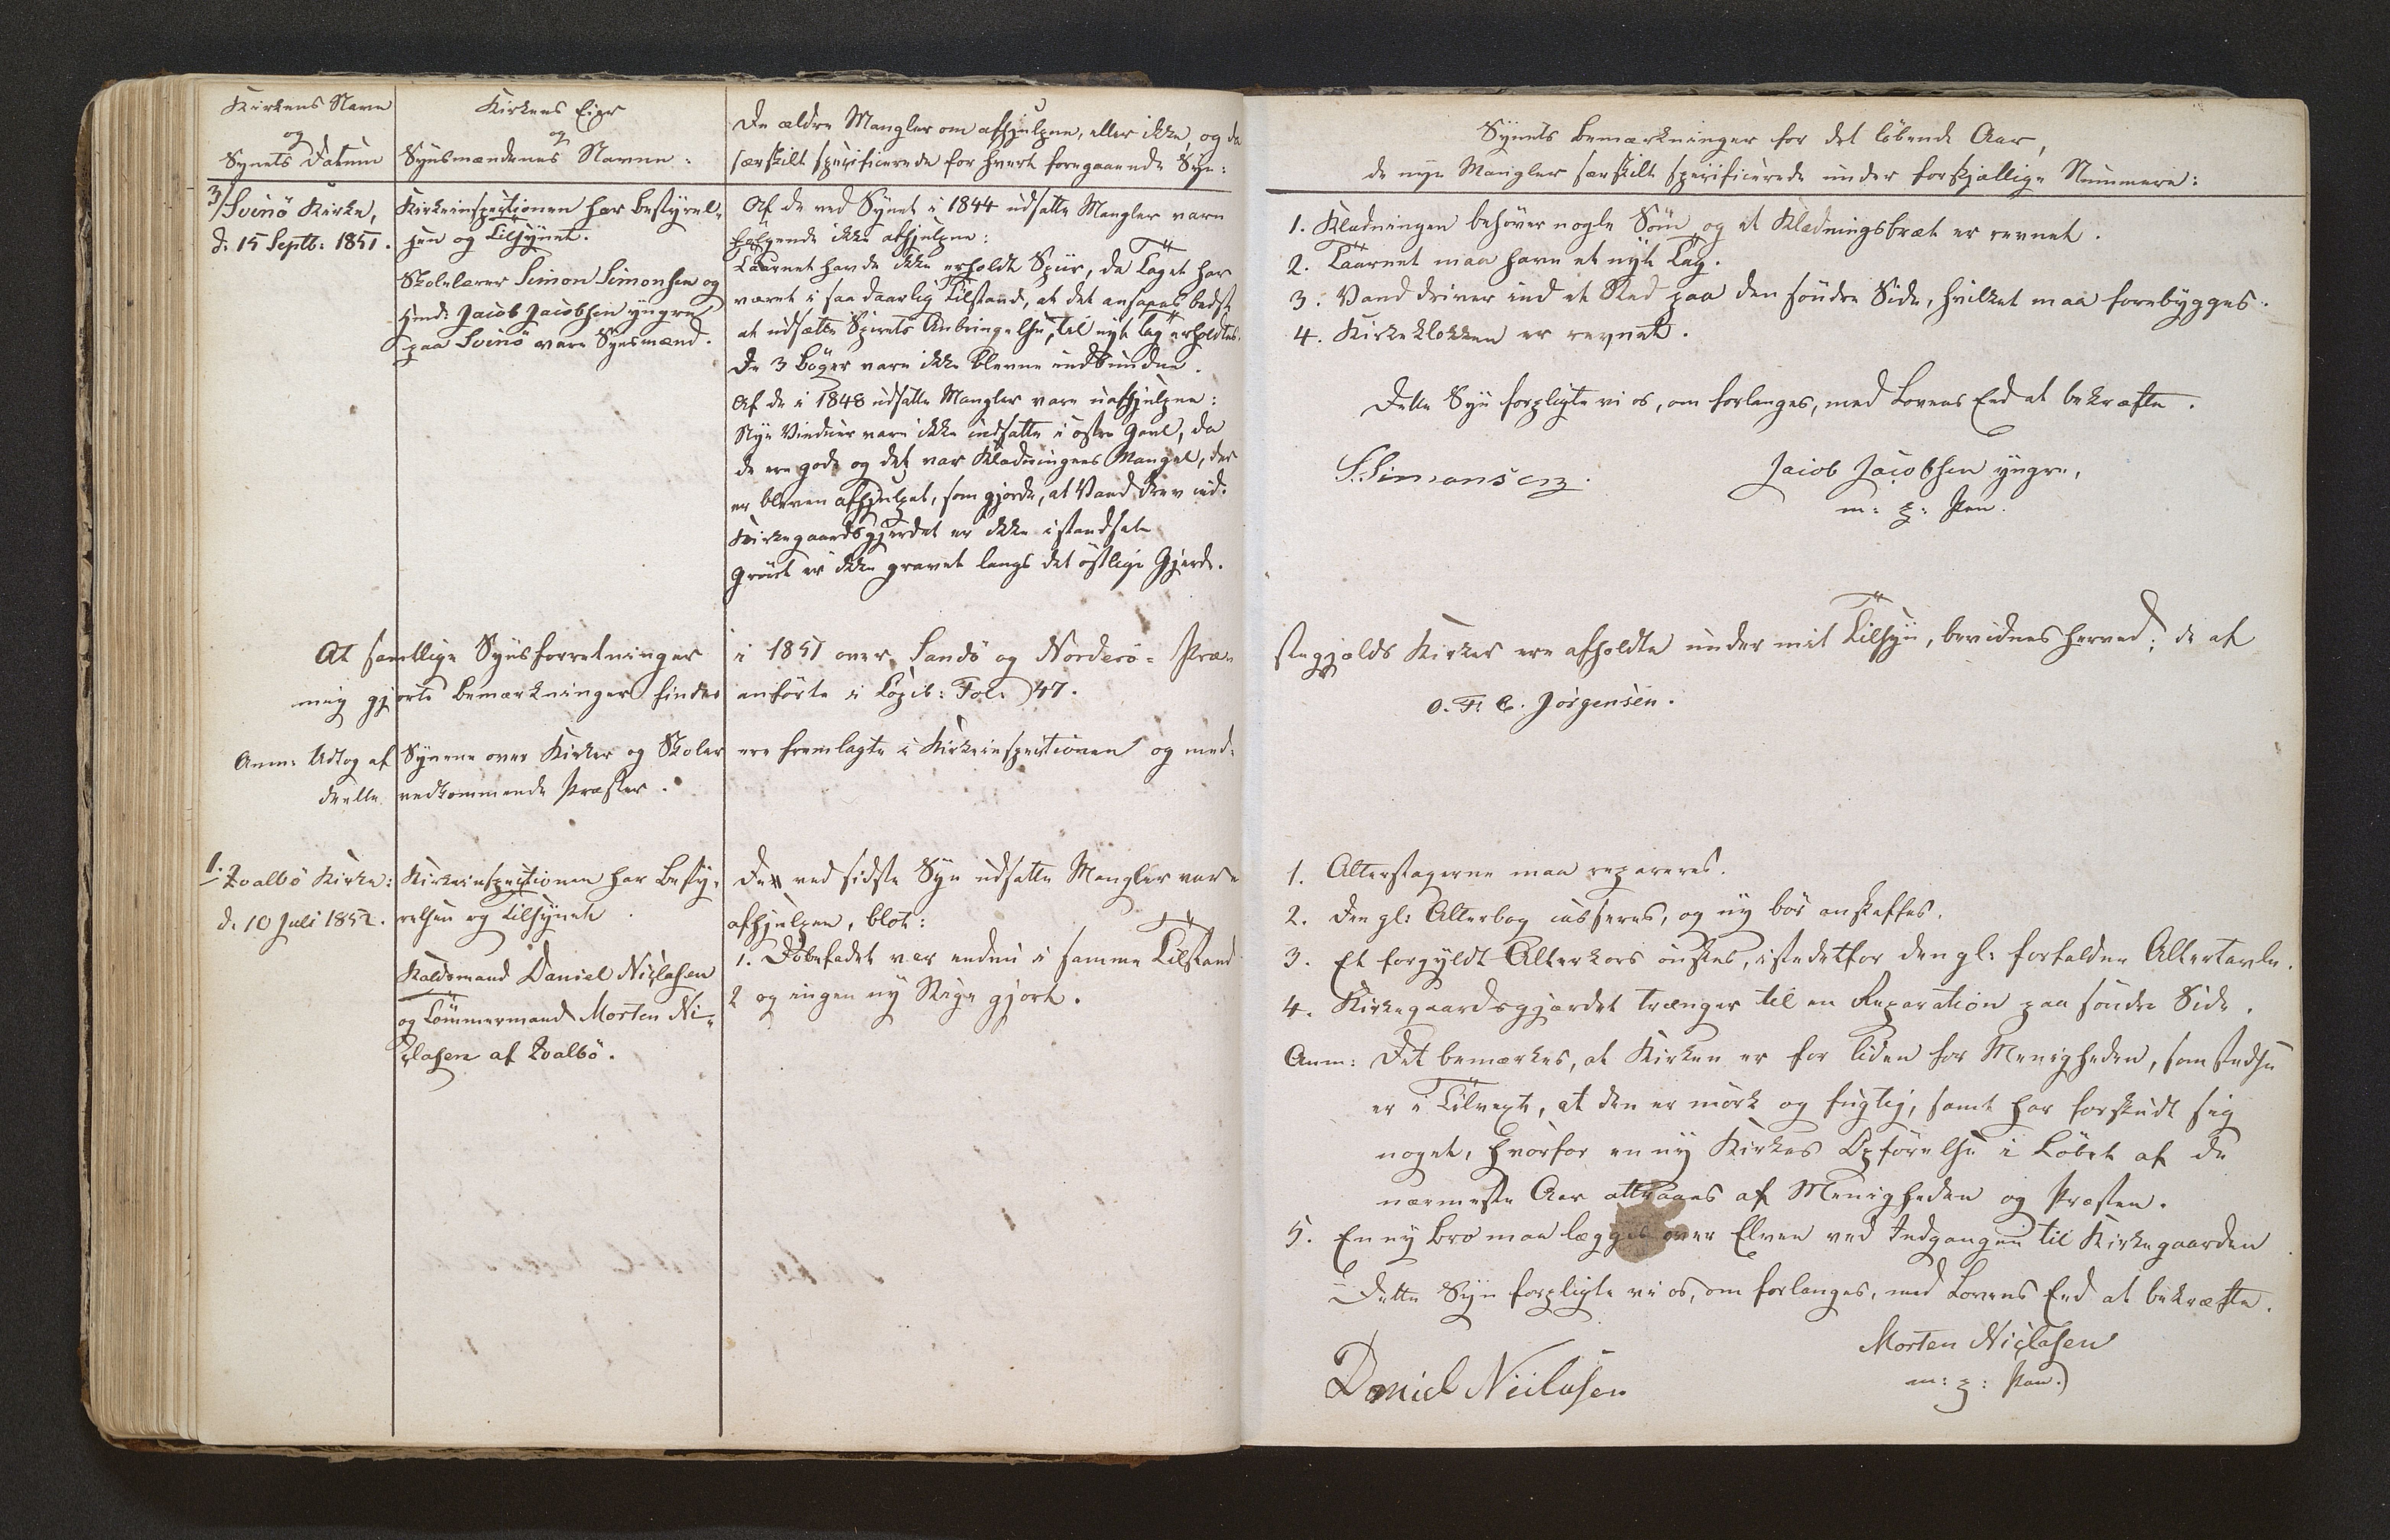 Kirkens Navn
og
Synets Datum
Kirkens Eier
og
Synsmændenes Navne:
De ældre Mangler om afhjulpne, eller ikke, og da
særskilt specificerede for hvert foregaaende Syn:
3/ Svinö Kirke,
d: 15 Septb: 1851.
Kirkeinspectionen har bestyrel-
sen og Tilsynet.
Skolelærer Simon Simonsen og
Jacob Jacobsen yngre,
paa Svinö vare Synsmænd.
Af de ved Synet i 1844 udsatte Mangler vare
følgende ikke afhjulpne:
Taarnet havde ikke erholdt Spiir, da Taget har
været i saa daarlig Tilstand, at det ansaaes bedst
at udsætte Spirets Anbringelse, til nyt Tag erholdtes.
De 3 Bøger vare ikke blevne indbundne.
Af de i 1848 udsatte Mangler vare uafhjulpne:
Nye Vinduer vare ikke indsatte i østre Gavl, da
de ere gode og det var Klædningens Mangel, der
er bleven afhjulpet, som gjorde, at Vand drev ind.
Kirkegaardsgjerdet er ikke istandsat
Grøvt er ikke gravet langs det östlige Gjerde.
At samtlige Synsforretninger i 1851 over Sandö og Norderö- Præ-
mig gjorte Bemærkninger findes anförte i Copib: Fol: 47.
Anm: Udtog af Synene over Kirker og Skoler ere fremlagte i Kirkeinspectionen og med-
deelte vedkommende Præster.
1. Qvalbö Kirke:
d. 10 Juli 1852.
Kirkeinspectionen har Besty-
relsen og Tilsynet.
Kaldsmand Daniel Niclasen
og Tömmermand Morten Ni-
clasen af Qvalbö.
De ved sidste Syn udsatte Mangler vare
afhjulpne, blot:
1. Döbefadet var endnu i samme Tilstand
2 og ingen ny Stige gjort.
Synets Bemærkninger for det löbende Aar,
de nye Mangler særskilt specificerede under forskjællige Nummere:
1. Klædningen behöver nogle Söm, og et Klædningsbræt er revnet.
2. Taarnet maa have et nyt Tag.
3. Vand driver ind et Sted paa den söndre Side, hvilket maa forebygges.
4. Kirkeklokken er revnet.
Dette Syn forpligte vi os, om forlanges, med Lovens Eed at bekræfte.
S. Simonsen.
Jacob Jacobsen yngre,
m: p: Pen.
stegjælds Kirker ere afholdte under mit Tilsyn, bevidnes herved; de af
O. F. C. Jörgensen.
1. Alterstagerne maa repareres.
2. Den gl: Alterbog casseres, og ny bör anskaffes.
3. Et forgyldt Alterkors önskes, istedetfor den gl: forfaldne Altertavle.
4. Kirkegaardsgjærdet trænger til en Reparation paa söndre Side.
Anm: Det bemærkes, at Kirken er for liden for Menigheden, som stedse
er i Tilvext, at den er mörk og fugtig, samt har forskudt sig
noget, hvorfor en ny Kirkes Opförelse i Löbet af de
nærmeste Aar attraaes af Menigheden og Præsten.
5. En ny Bro maa lægges over Elven ved Indgangen til Kirkegaarden
Dette Syn forpligte vi os, om forlanges, med Lovens Eed at bekræfte.
Daniel Niclasen
Morten Niclasen
m: p: Pen.